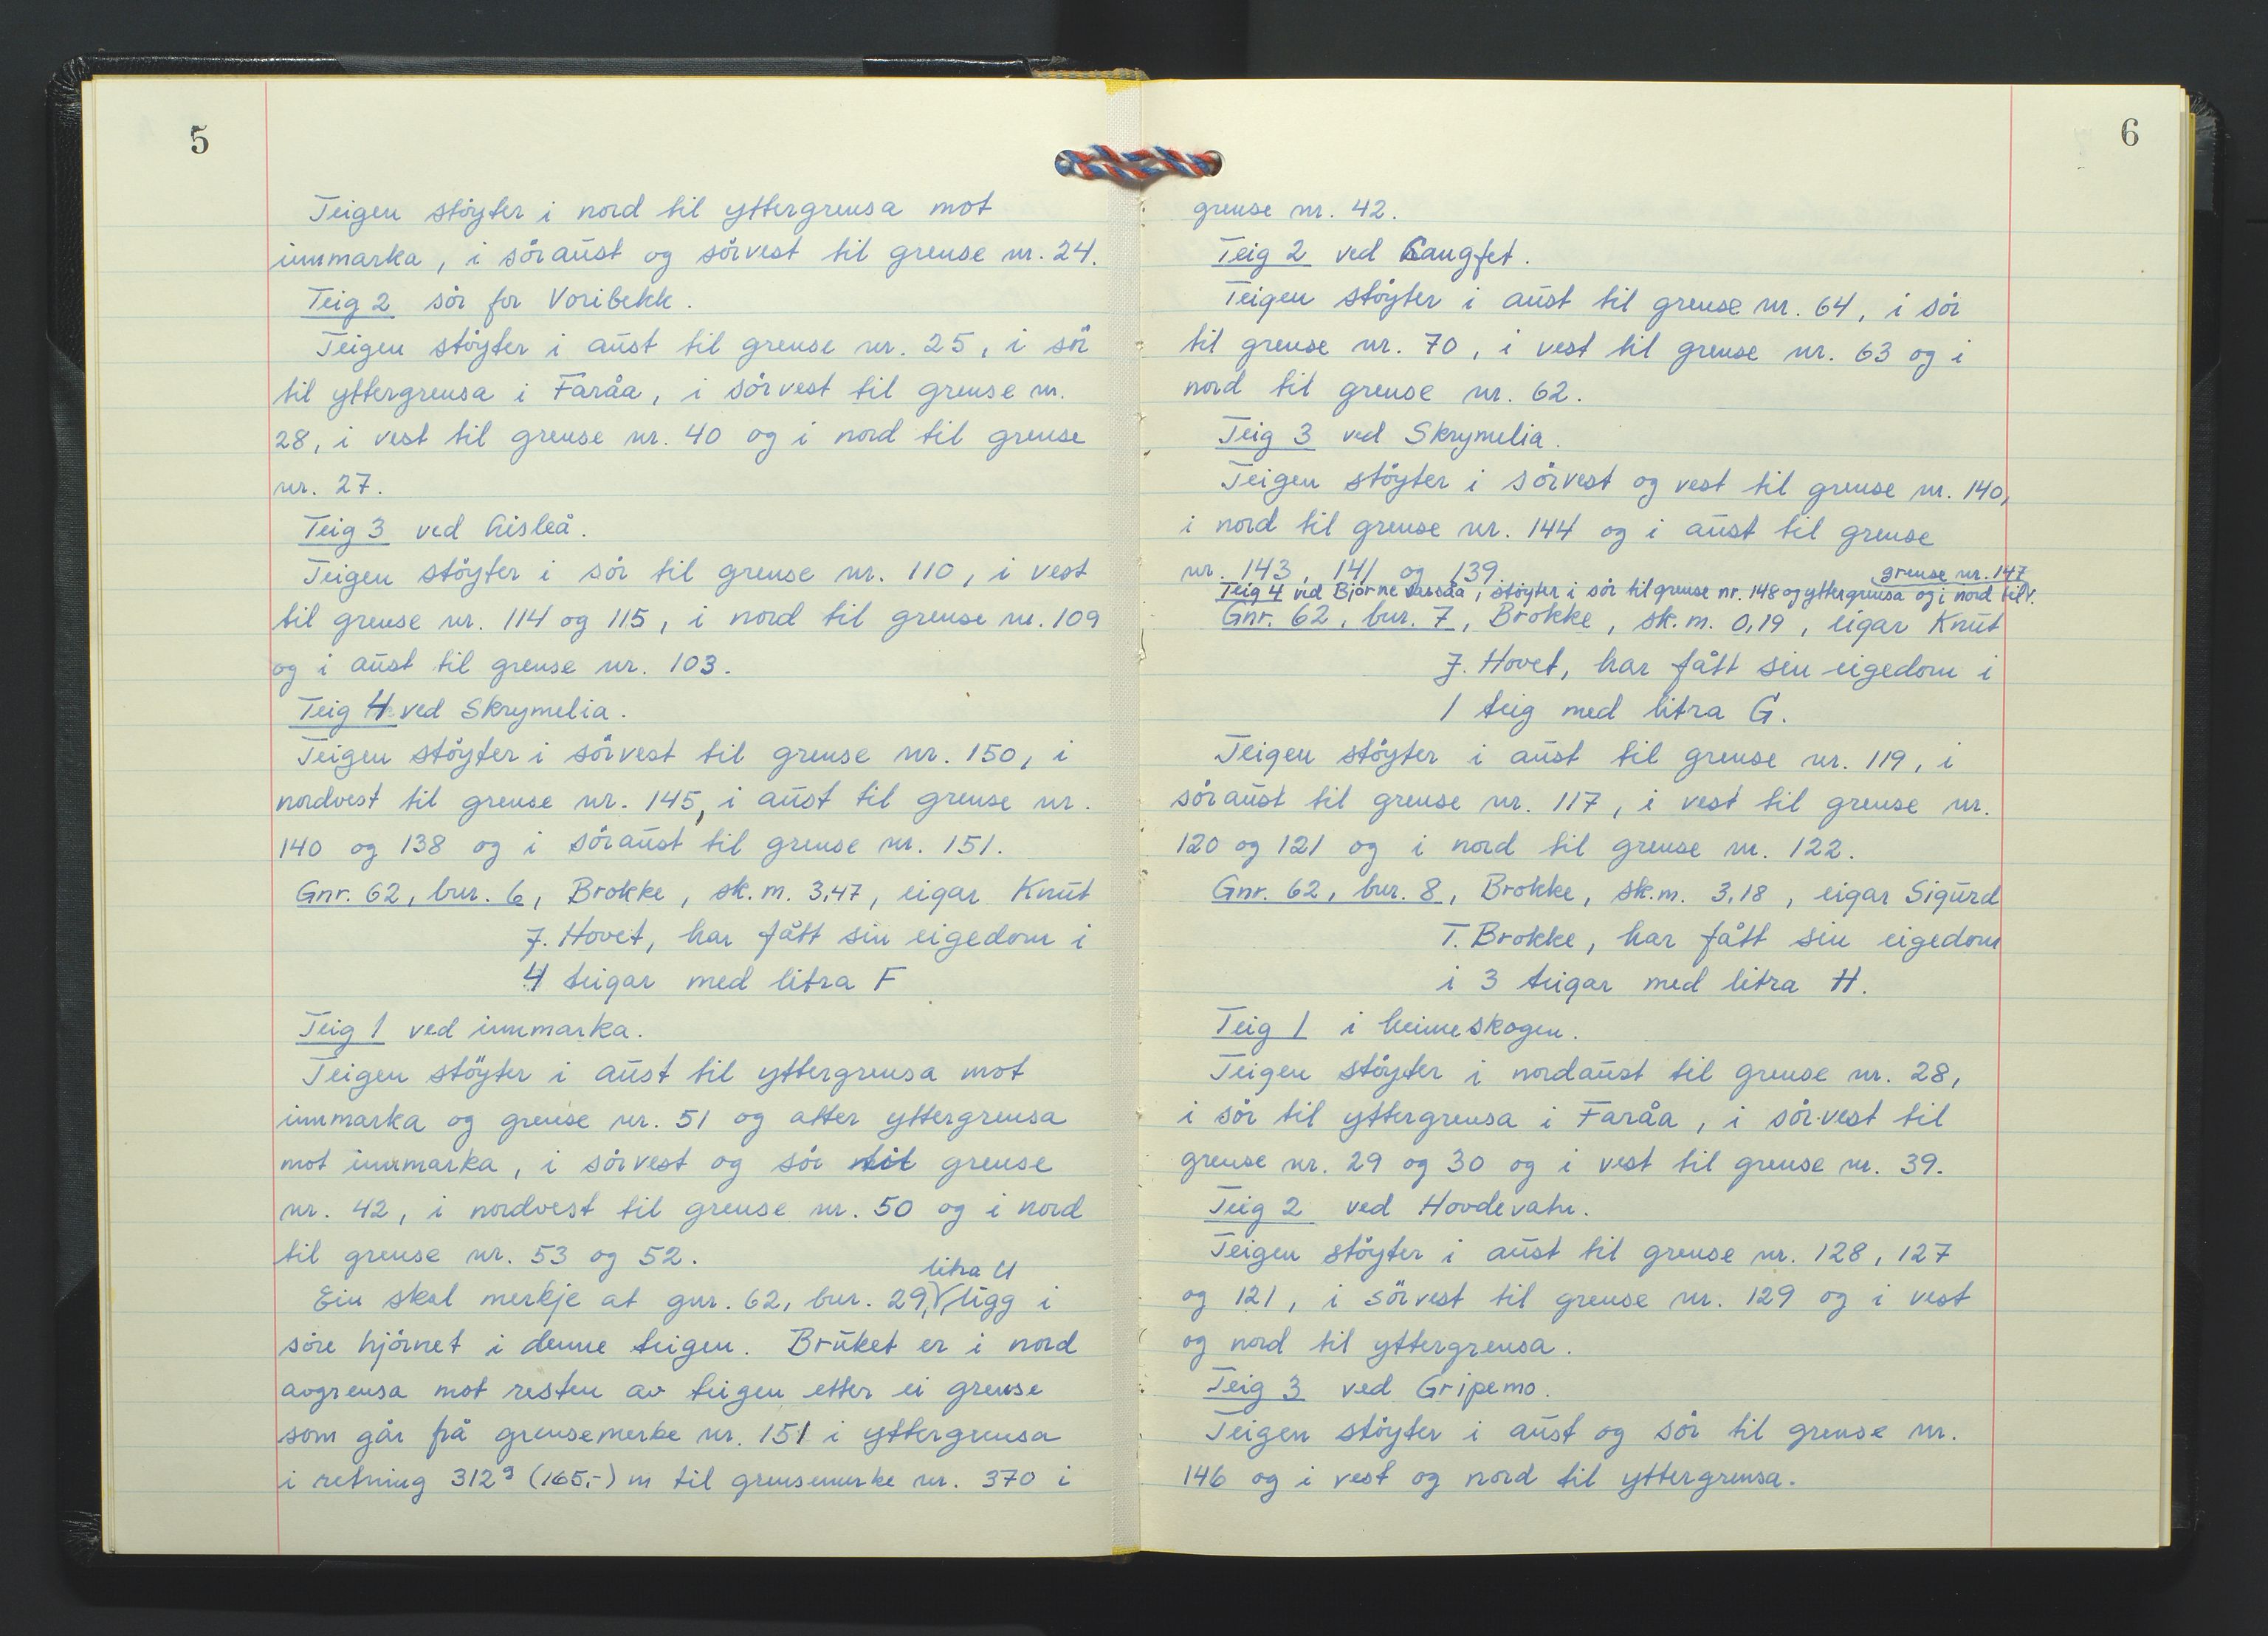 5
Teigen støyter i nord til yttergrensa mot
innmarka, i søraust og sørvest til grense nr. 24.
Teig 2 sør for Voribekk.
Teigen støyter i aust til grense nr. 25, i sør
til yttergrensa i Faråa, i sørvest til grense nr.
28, i vest til grense nr. 40 og i nord til grense
nr. 27.
Teig 3 ved Lisleå.
Teigen støyter i sør til grense nr. 110, i vest
til grense nr. 114 og 115, i nord til grense nr. 109
og i aust til grense nr. 103.
Teig 4 ved Skrymelia.
Teigen støyter i sørvest til grense nr. 150, i
nordvest til grense nr. 145, i aust til grense nr.
140 og 138 og i søraust til grense nr. 151.
Gnr. 62, bnr. 6, Brokke, sk.m. 3,47, eigar Knut
J. Hovet, har fått sin eigedom i
4 teigar med litra F
Teig 1 ved innmarka.
Teigen støyter i aust til yttergrensa mot
innmarka og grense nr. 51 og atter yttergrensa
mot innmarka, i sørvest og sør til grense
nr. 42, i nordvest til grense nr. 50 og i nord
til grense nr. 53 og 52.
litra U
Ein skal merkje at gnr. 62, bnr. 29, ligg i
søre hjørnet i denne teigen. Bruket er i nord
avgrensa mot resten av teigen etter ei grense
som går frå grensemerke nr. 151 i yttergrensa
i retning 312g (165,-) m til grensemerke nr. 370 i
6
grense nr. 42.
Teig 2 ved Langfet.
Teigen støyter i aust til grense nr. 64, i sør
til grense nr. 70, i vest til grense nr. 63 og i
nord til grense nr. 62.
Teig 3 ved Skrymelia.
Teigen støyter i sørvest og vest til grense nr. 140,
i nord til grense nr. 144 og i aust til grense
nr. 143, 141 og 139.
grense nr. 147
Teig 4 ved Bjørne, støyter i sør til grense nr. 148 og yttergrensa og i nord til
Gnr. 62, bnr. 7, Brokke, sk.m. 0,19, eigar Knut
J. Hovet, har fått sin eigedom i
1 teig med litra G.
Teigen støyter i aust til grense nr. 119, i
søraust til grense nr. 117, i vest til grense nr.
120 og 121 og i nord til grense nr. 122.
Gnr. 62, bnr. 8, Brokke, sk.m. 3,18, eigar Sigurd
T. Brokke, har fått sin eigedom
i 3 teigar med litra H.
Teig 1 i heimeskogen.
Teigen støyter i nordaust til grense nr. 28,
i sør til yttergrensa i Faråa, i sørvest til
grense nr. 29 og 30 og i vest til grense nr. 39.
Teig 2 ved Hovdevatn.
Teigen støyter i aust til grense nr. 128, 127
og 121, i sørvest til grense nr. 129 og i vest
og nord til yttergrensa.
Teig 3 ved Gripemo.
Teigen støyter i aust og sør til grense nr.
146 og i vest og nord til yttergrensa.